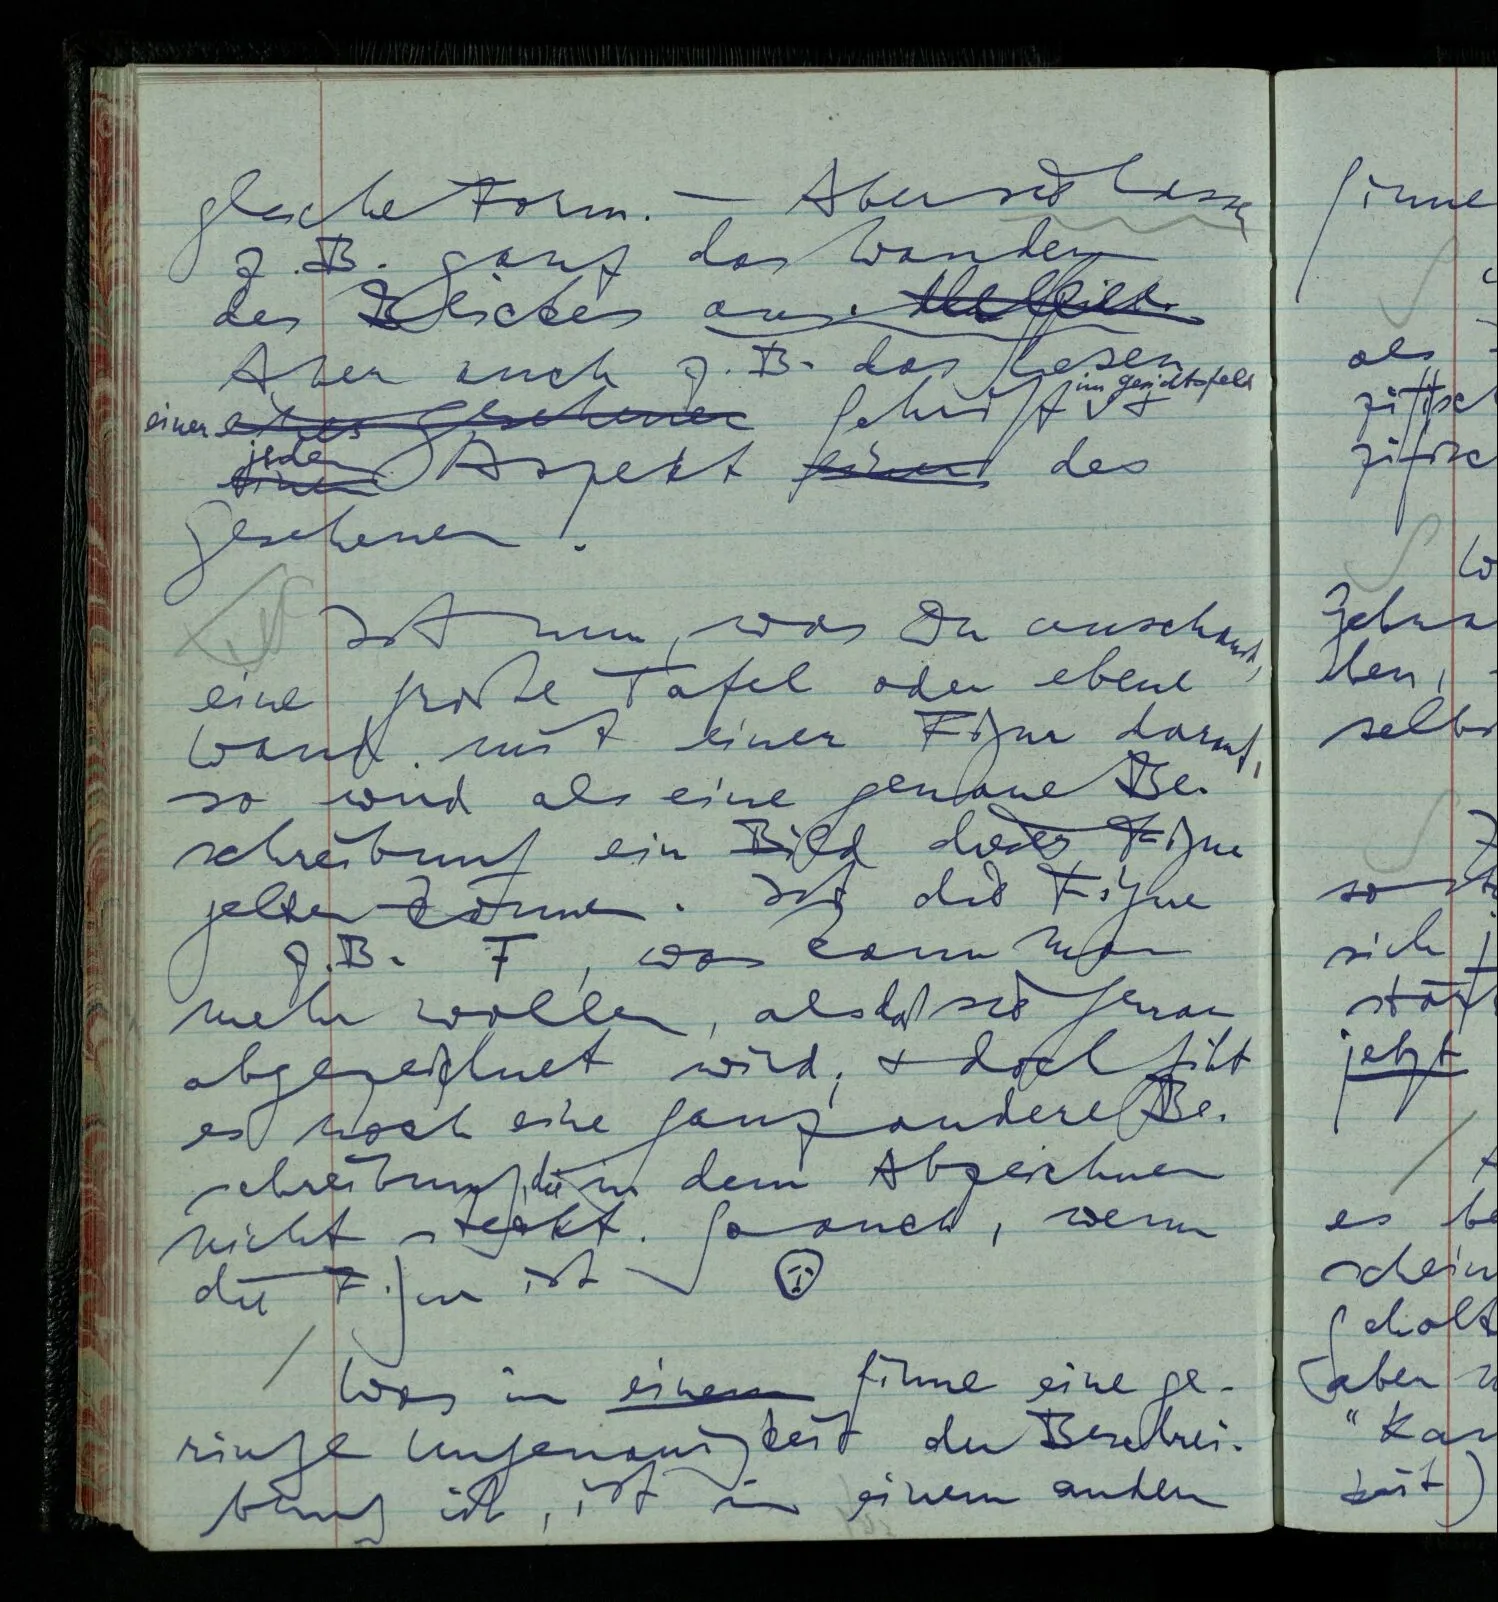 gleiche Form. — Aber sie lasse
z.B. ganz das Wandern
des Blickes aus.
Aber auch z.B. das Lesen
einer Schrift im Gesichtsfeld +
jeden Aspekt des
Gesehenen.
Ist nun, was Du anschaust,
eine große Tafel oder ebene
Wand mit einer Figur darauf,
so wird als eine genaue Be-
schreibung ein Bild dieser Figur
gelten können. Ist die Figur
z.B. F, was kann man
mehr wollen, als daß sie genau
abgezeichnet wird; + doch gibt
es noch eine ganz andere Be-
schreibung, die in dem Abzeichnen
nicht steckt. So auch, wenn
die Figur ist
Was in einem Sinne eine ge-
ringe Ungenauigkeit der Beschrei-
bung ist, ist in einem andern
Sinne
als
selbs
sich
jetzt
es be
schein
aber
"Kar
keit)